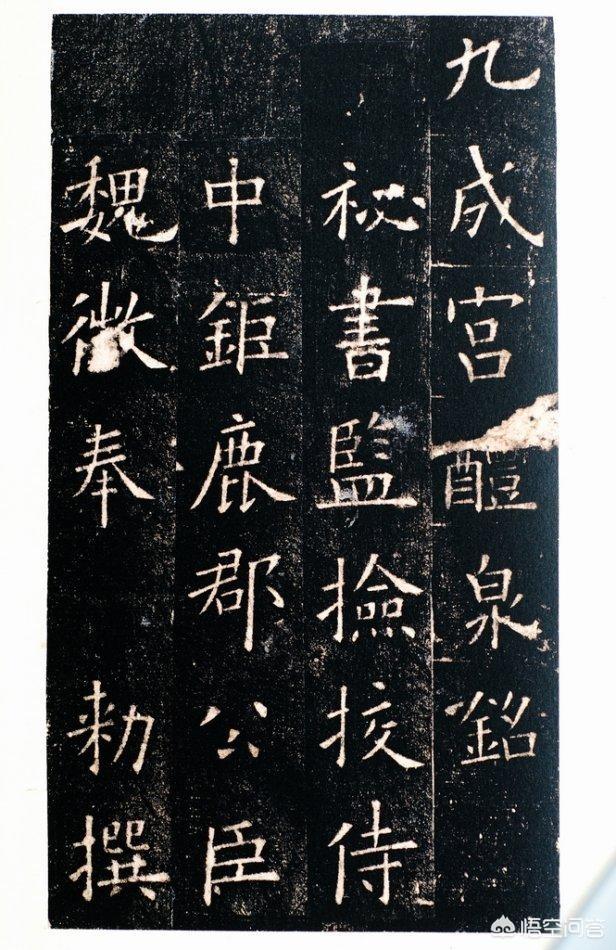 九成宮醴泉銘
祕書監撿挍侍
中鉅鹿郡公臣
魏徵奉 勑撰
悟空问答